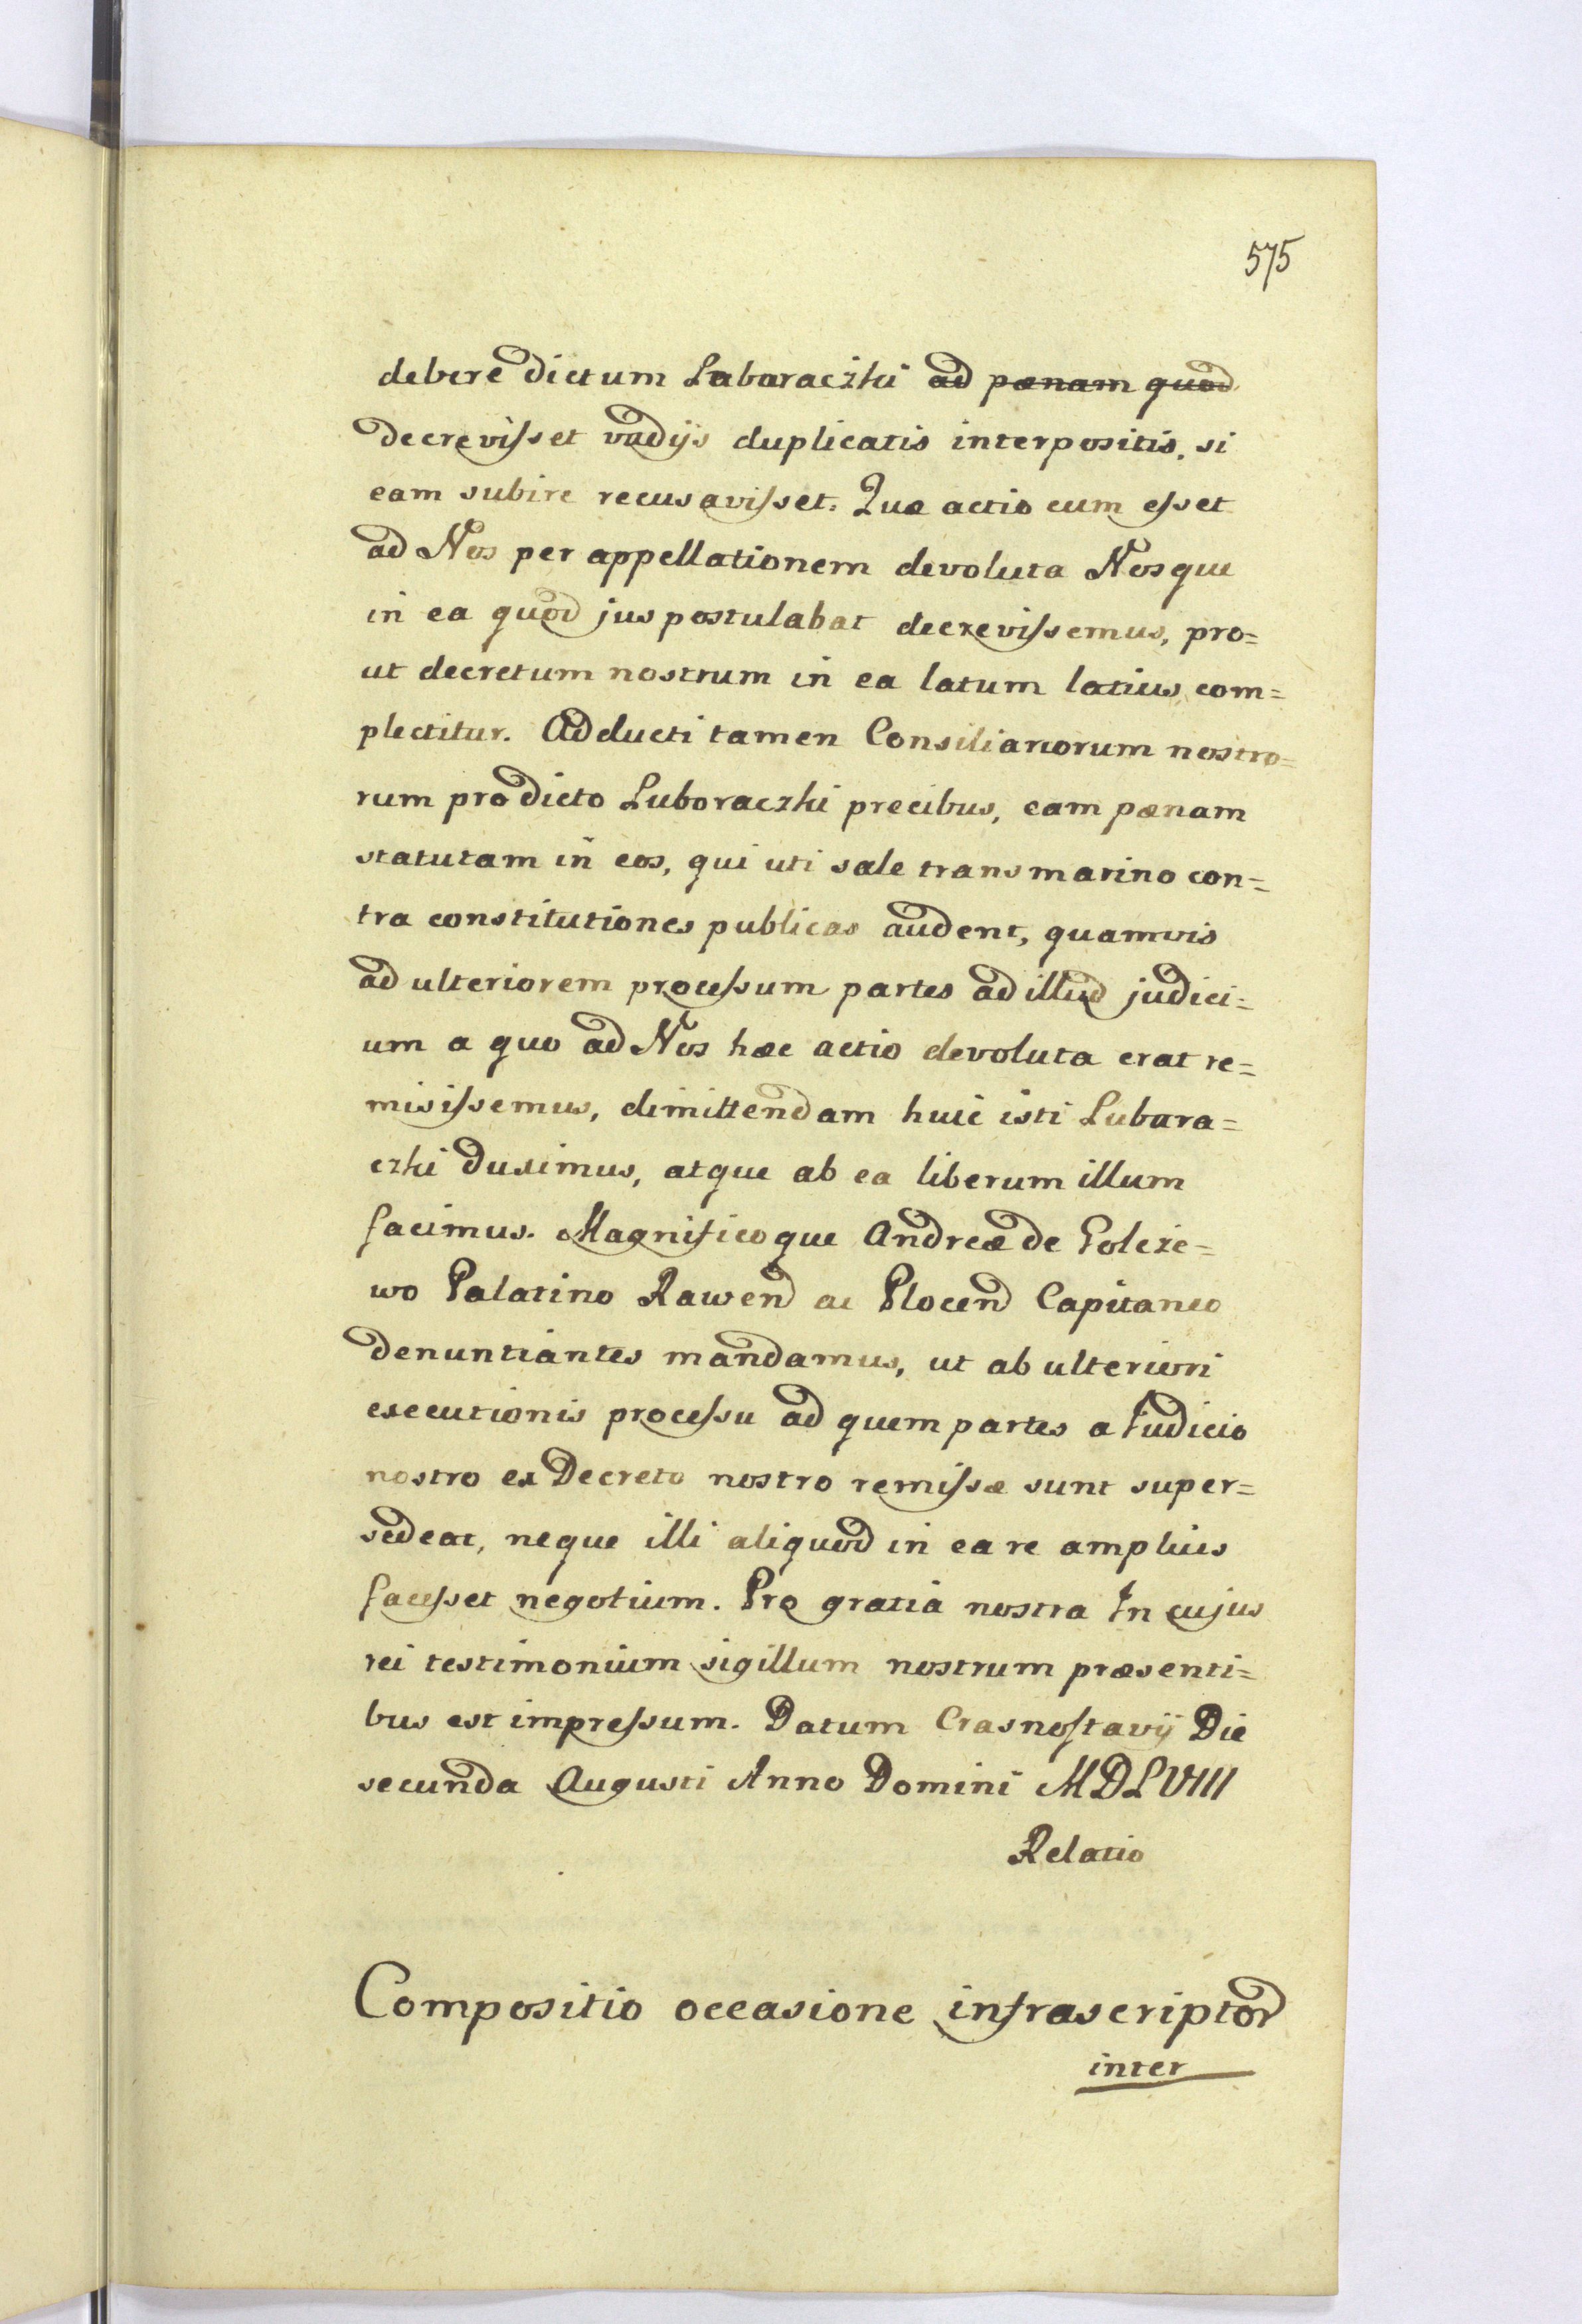 575
debere dictum Laboraczki ad pænam quod
decrevisset vadijs duplicatis interpositis, si
eam subire recusavisset. Quæ actio cum esset
ad Nos per appellationem devoluta Nosque
in ea quod jus postulabat decrevissemus, pro=
ut decretum nostrum in ea latum latius com=
plectitur. Adducti tamen Consiliariorum nostro=
rum pro dicto Luboraczki precibus, eam pænam
statutam in eos, qui uti sale transmarino con=
tra constitutiones publicas audent, quamvis
ad ulteriorem processum partes ad illud judici=
um a quo ad Nos hæc actio devoluta erat re=
misissemus, dimittendam huic isti Lubora=
czki duximus, atque ab ea liberum illum
facimus. Magnificoque Andreæ de Goleze=
wo Palatino Rawend ac Plocend Capitaneo
denuntiantes mandamus, ut ab ulteriori
executionis processu ad quem partes a Iudicio
nostro ex Decreto nostro remissæ sunt super=
sedeat, neque illi aliquod in ea re amplius
facesset negotium. Pro gratia nostra In cujus
rei testimonium sigillum nostrum præsenti=
bus est impressum. Datum Crasnostavij Die
secunda Augusti Anno Domini MDLVIII
Relatio
Compositio occasione infrascriptor
inter